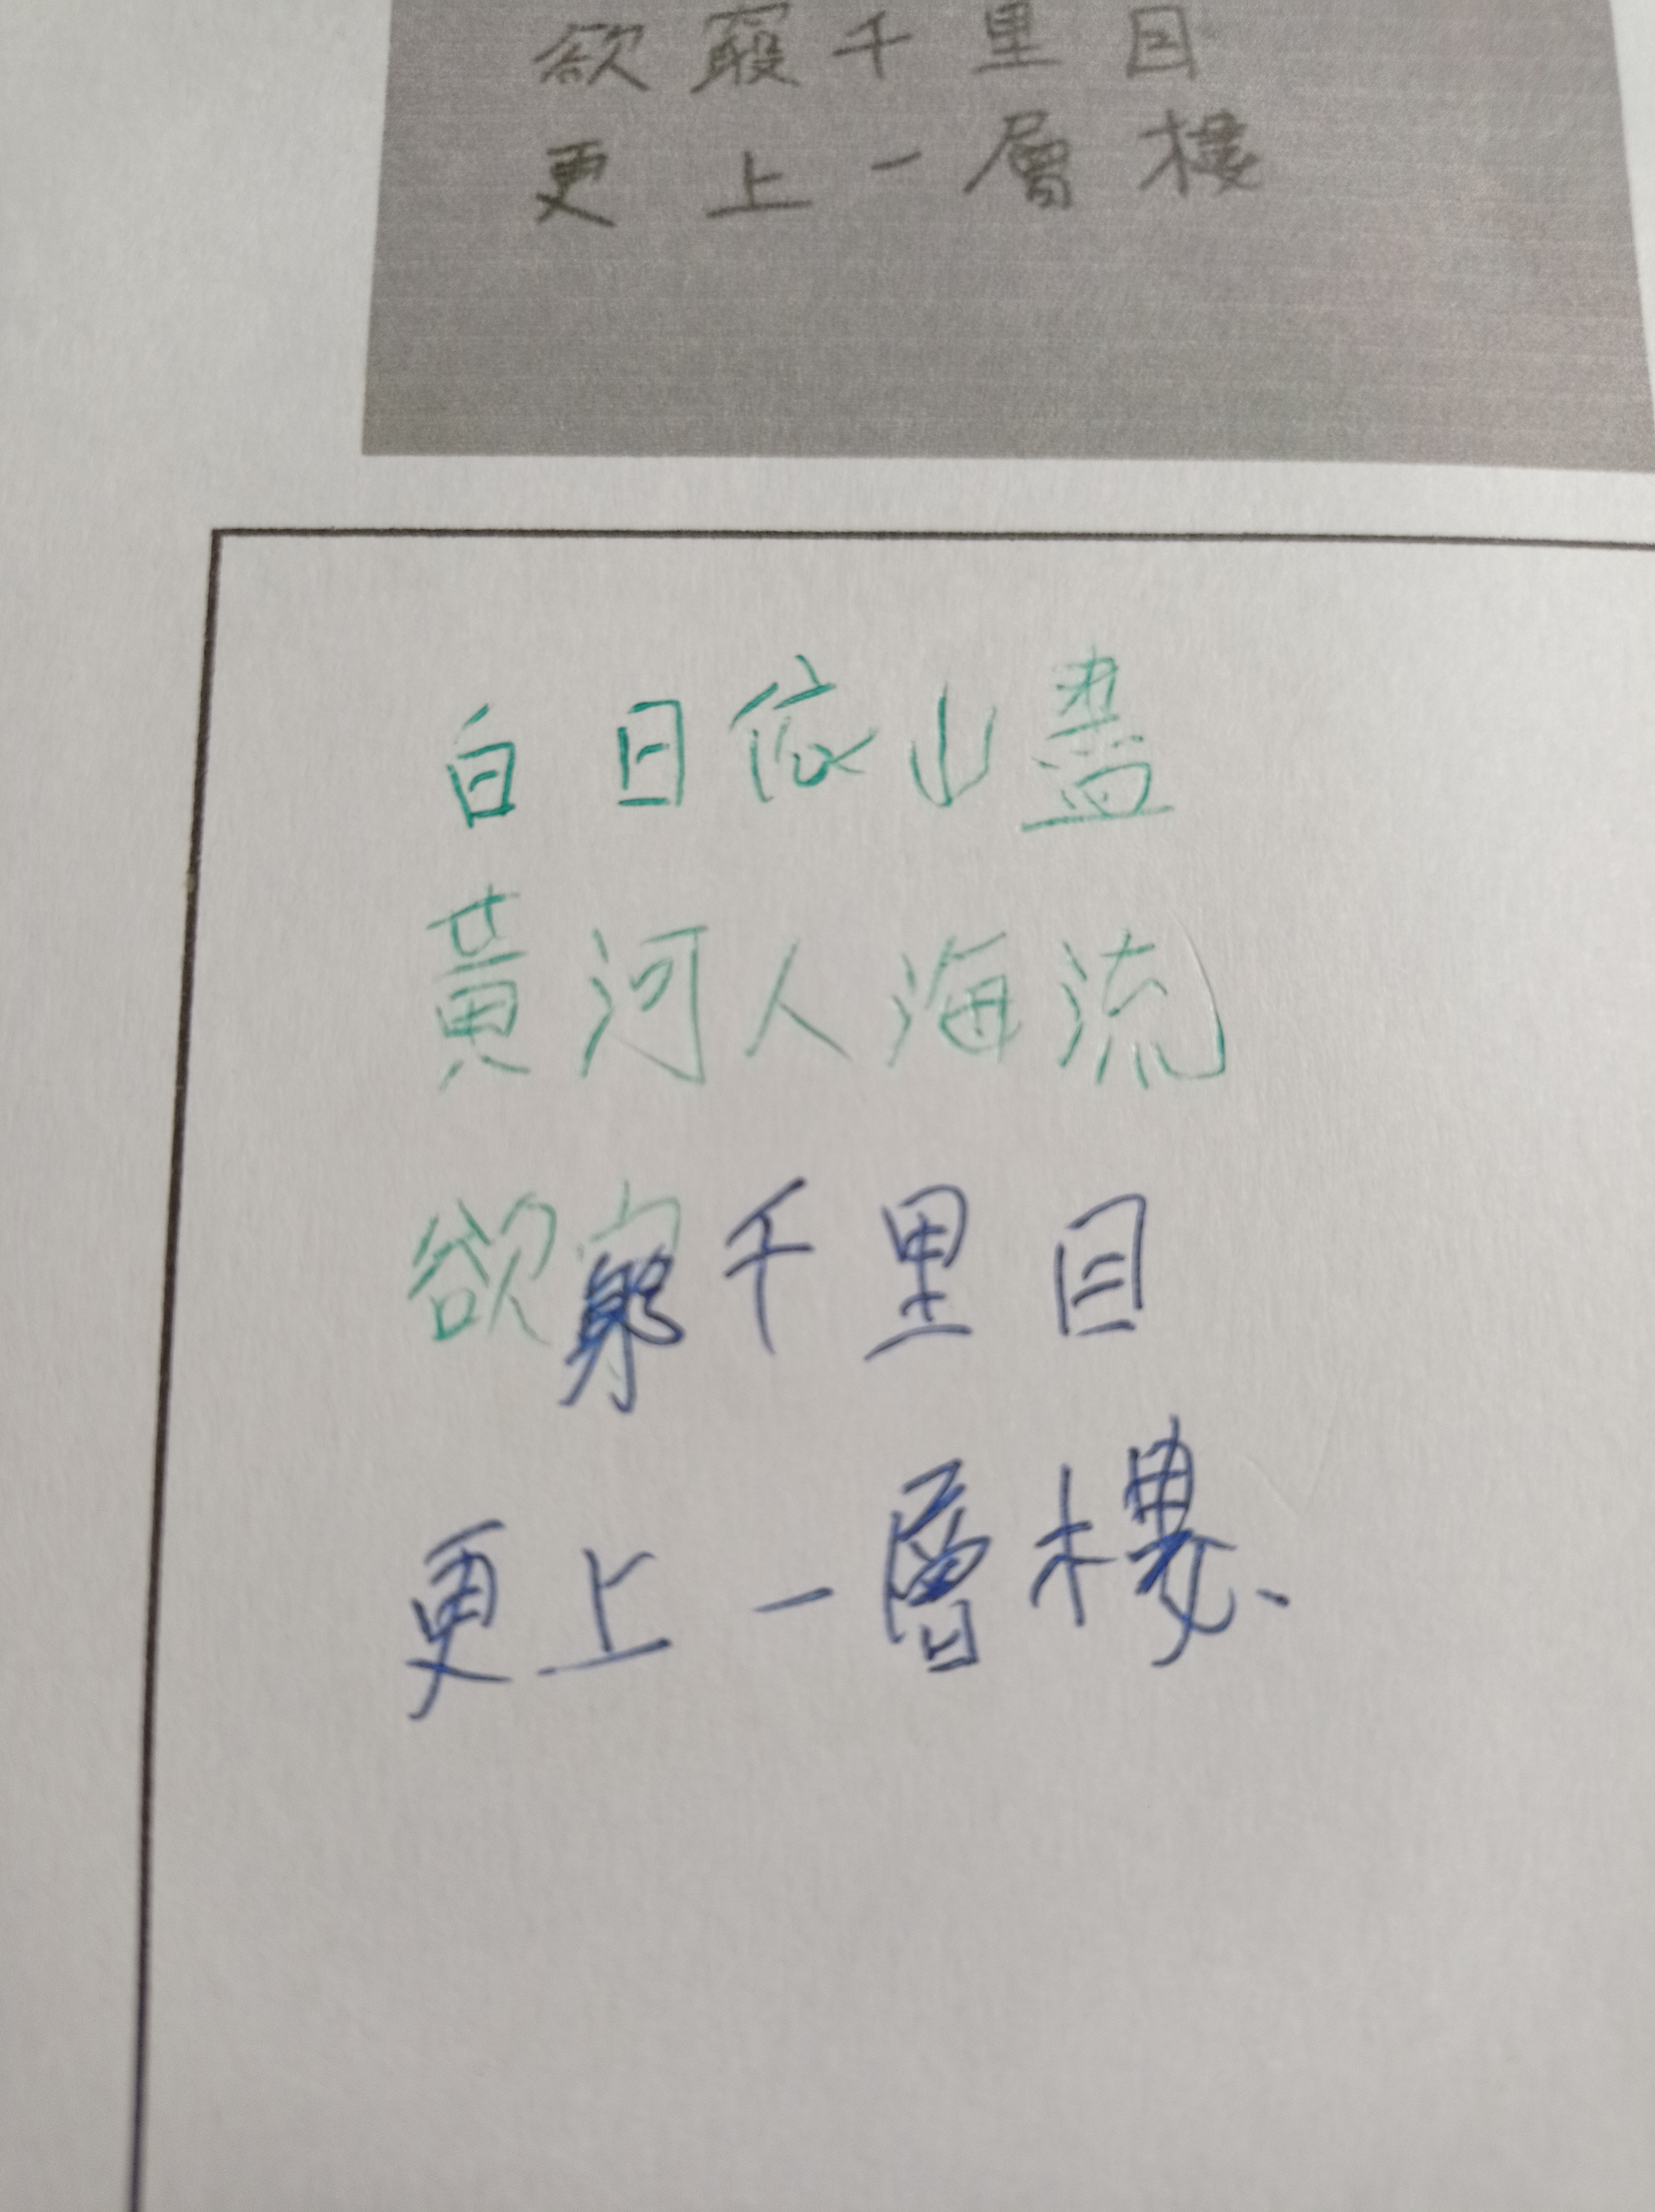 欲窮千里目
更上一層樓
白日依山盡
黃河人海流
欲窮千里目
更上一層樓、